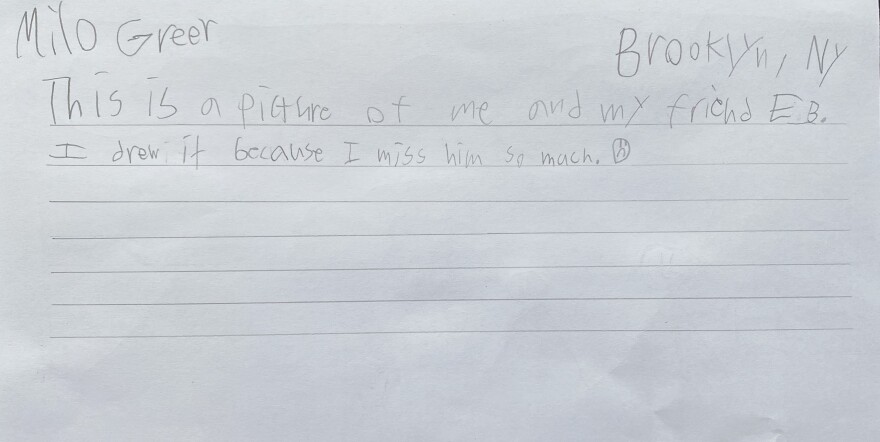 Milo Greer
Brooklyn, NY
This is a picture of me and my friend E.B.
I drew it because I miss him so much.